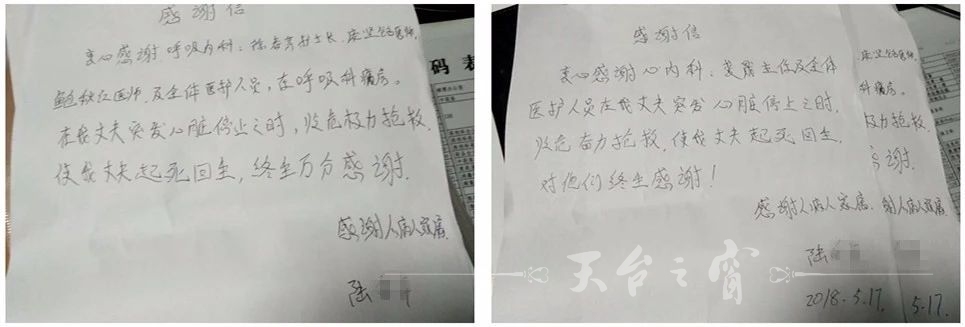 感谢信
衷心感谢呼吸内科：护士长
医师及全体医护人员，在呼吸科病房。
在我丈夫突发心脏停止之时，极力抢救
使我丈夫起死回生，终生万分感谢
感谢人病人家属
陆
码表
感谢信
衷心感谢心内科：主任及全体
医护人员在我丈夫突发心脏停止之时，
奋力抢救，使我丈夫起死回生，
对他们终生感谢！
感谢人病人家属
陆
2018.5.17
科病房。
极力抢救
谢
谢人病人家属
5.17.
天台之窗